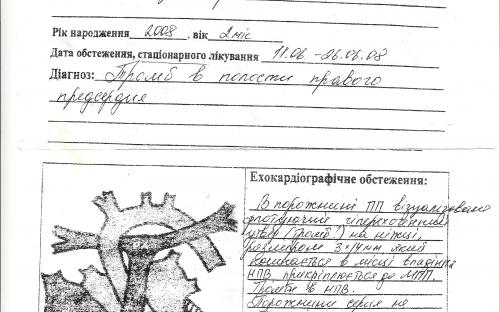 Рік народження 2008 . вік 2 міс
Дата обстеження, стаціонарного лікування 11.06 - 26.06.08
Діагноз: Тромб в полости правого
предсердия
Ехокардіографічне обстеження:
В порожнині ПП візуалізовано
флотуючий гіперехогенний
утвір (тромб?) на ніжці,
розміром 3×14мм, який
в місці впадіння
НПВ, прикріплюється до МПП.
Тромби в НПВ.
Порожнини серця не